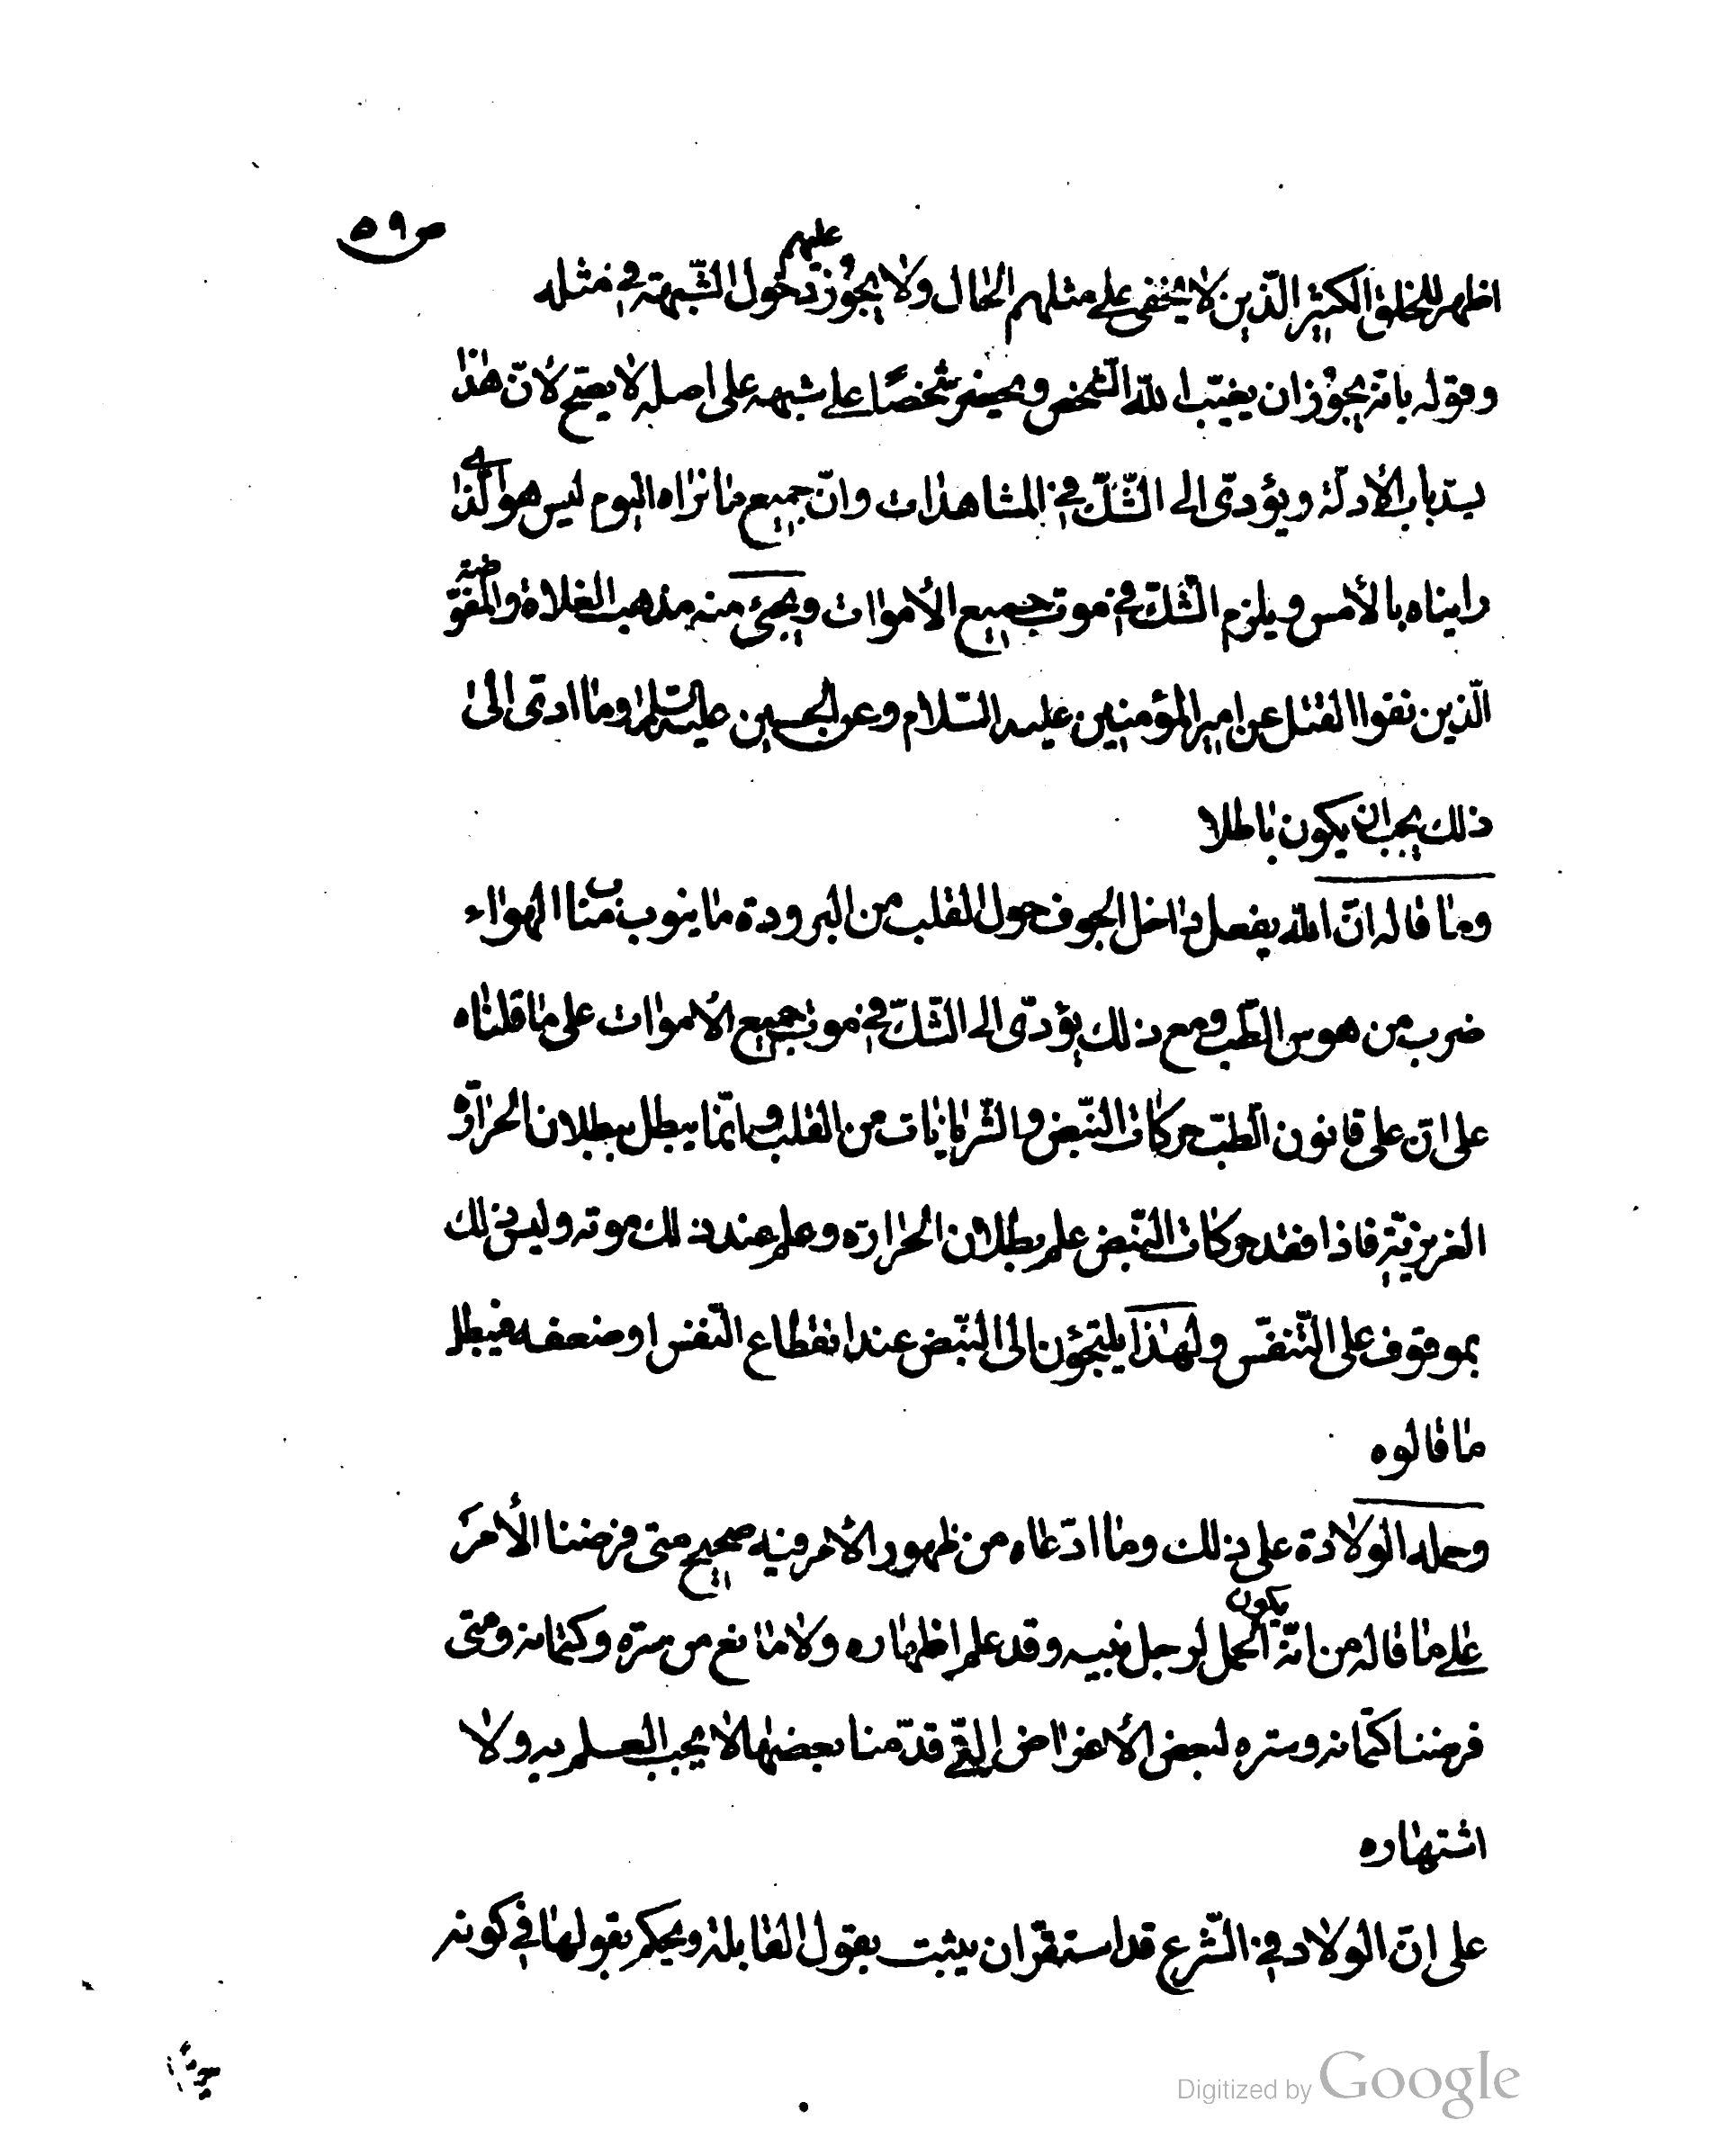 ص٥٩
اظهر للخلق الكثير الّذين لا يخفى على مثلهم الحال ولا يجوز عليهم دخول الشّبهة في مثله
وقوله بانّه يجوز ان يغيّب الله الشّخص ويحضر شخصًا على شبهه على اصله لا يصحّ لانّ هذا
يسدّ باب الأدلّة ويؤدّى الى الشّكّ في المشاهدات وانّ جميع ما نراه اليوم ليس هو الّذى
رايناه بالأمس ويلزم الشّكّ في موت جميع الأموات ويجئ منه مذهب الغلاة والمفوّضة
الّذين نفوا القتل عن امير المؤمنين عليه السّلام وعن الحسين عليه السّلام وما ادّى الى
ذلك يجب ان يكون باطلا
وما قاله انّ الله يفعل داخل الجوف حول القلب من البرودة ما ينوب مناب الهواء
ضرب من هوس الطّب ومع ذلك يؤدّى الى الشّكّ في موت جميع الأموات على ما قلناه
على انّ على قانون الطّبّ حركات النّبض والشّريانات من القلب وانّما يبطل ببطلان الحرارة
الغريزيّة فاذا فقد حركات النّبض علم بطلان الحرارة وعلم عند ذلك موته وليس ذلك
بموقوف على التّنفّس ولهذا يلتجئون الى النّبض عند انقطاع النّفس او ضعفه فيبطل
ما قالوه
وحمله الولادة على ذلك وما ادّعاه من ظهور الأمر فيه صحيح متى فرضنا الأمر
على ما قاله من انّه يكون الحمل لرجل نبيه وقد علم اظهاره ولا مانع من ستره وكتمانه ومتى
فرضنا كتمانه وستره لبعض الأغراض الّتي قدّمنا بعضها لا يجب العلم به ولا
اشتهاره
على انّ الولاد في الشّرع قد استقرّ ان يثبت بقول القابلة ويحكم بقولها في كونه
Digitized by Google